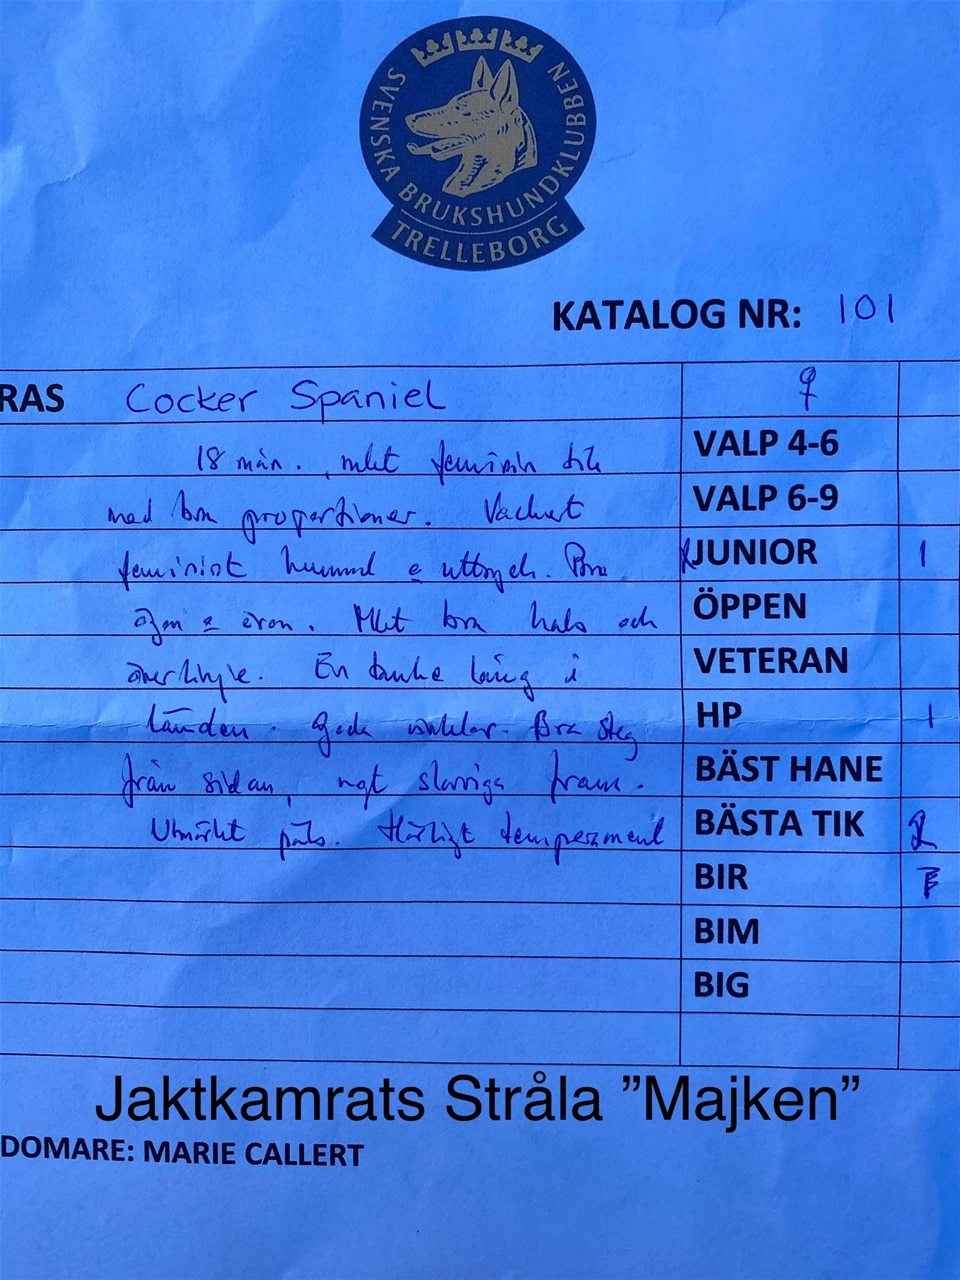 SVENSKA BRUKSHUNDKLUBBEN
TRELLEBORG
KATALOG NR: 101
RAS Cocker Spaniel ♀
18 mån., mkt feminin tik
VALP 4-6
med bra proportioner. Vackert
VALP 6-9
feminint huvud & uttryck. Bra
JUNIOR 1
ögon & öron. Mkt bra hals och
ÖPPEN
överlinje. En tanke lång i
VETERAN
länden. Goda vinklar. Bra steg
HP 1
från sidan, ngt slarviga fram.
BÄST HANE
Utmärkt päls. Härligt temperament
BÄSTA TIK 2
BIR
BIM
BIG
Jaktkamrats Stråla ”Majken”
DOMARE: MARIE CALLERT